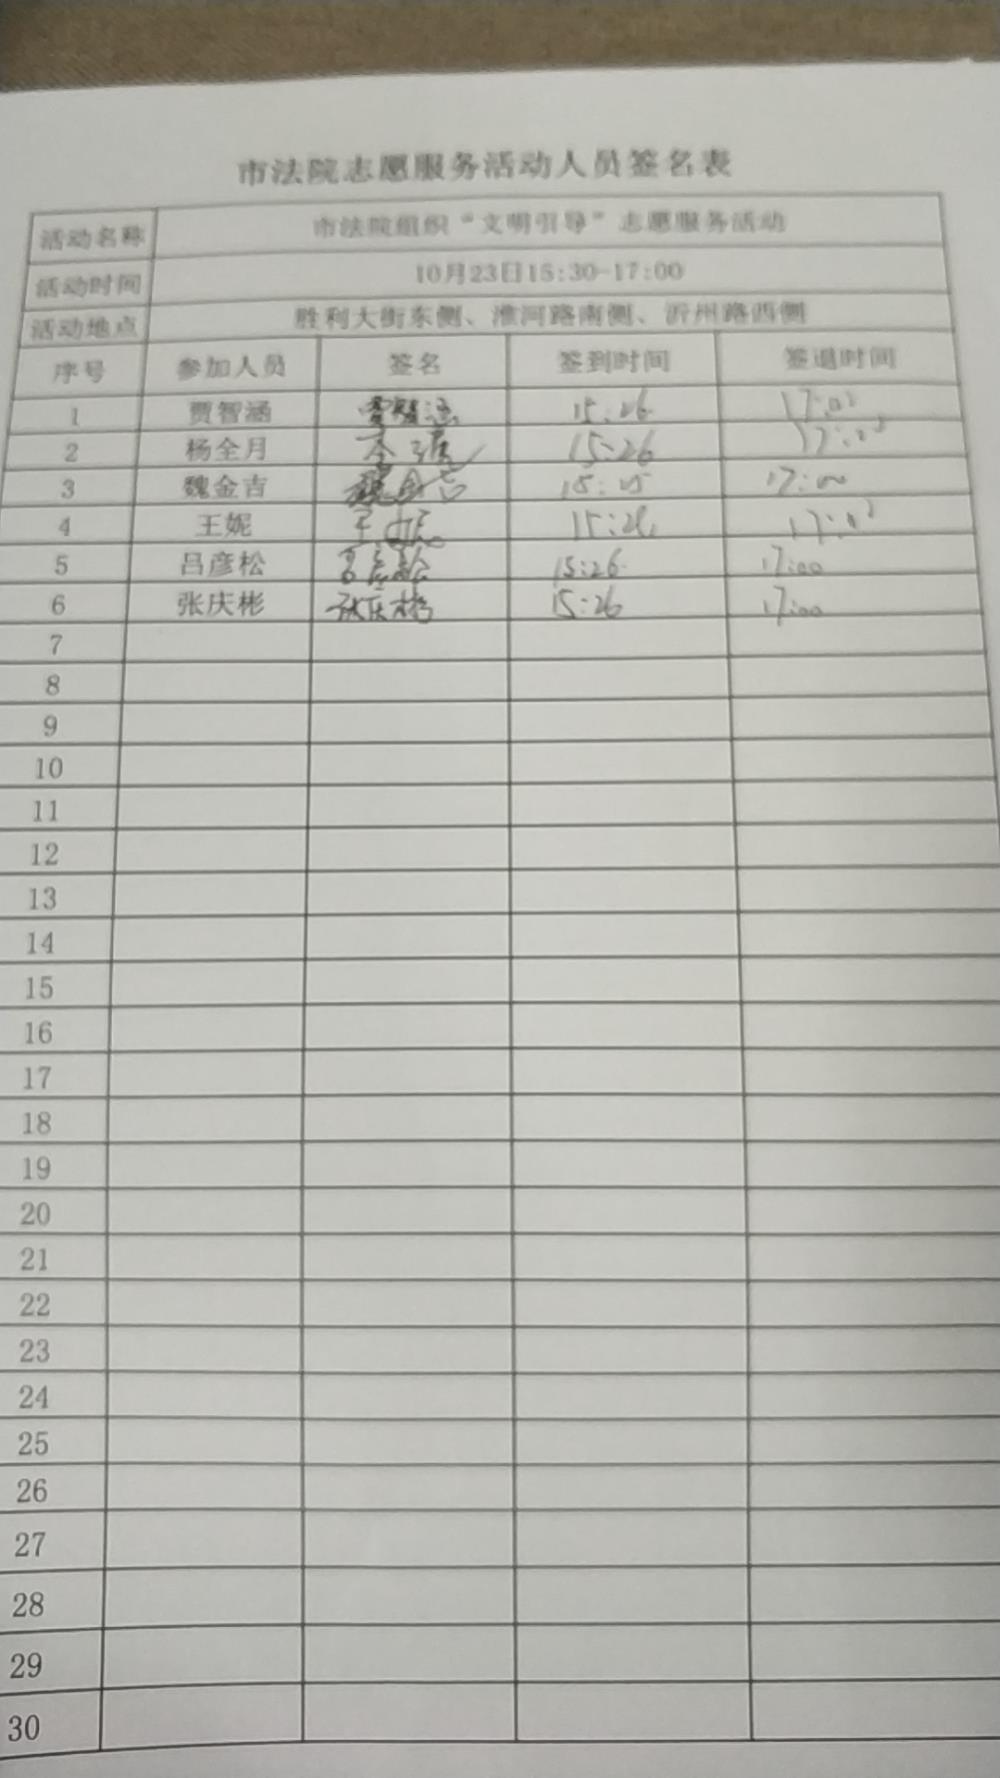 市法院志愿服务活动人员签名表
活动名称 市法院组织“文明引导”志愿服务活动
活动时间 10月23日15:30-17:00
活动地点 胜利大街东侧、淮河路南侧、沂州路西侧
序号 参加人员 签名 签到时间 签退时间
1 贾智涵 贾智涵 15:26 17:02
2 杨全月 15:26
3 魏金吉 魏金吉 15:25 17:00
4 王妮 王妮 15:26
5 吕彦松 吕彦松 15:26 17:00
6 张庆彬 张庆彬 15:26 17:00
7
8
9
10
11
12
13
14
15
16
17
18
19
20
21
22
23
24
25
26
27
28
29
30